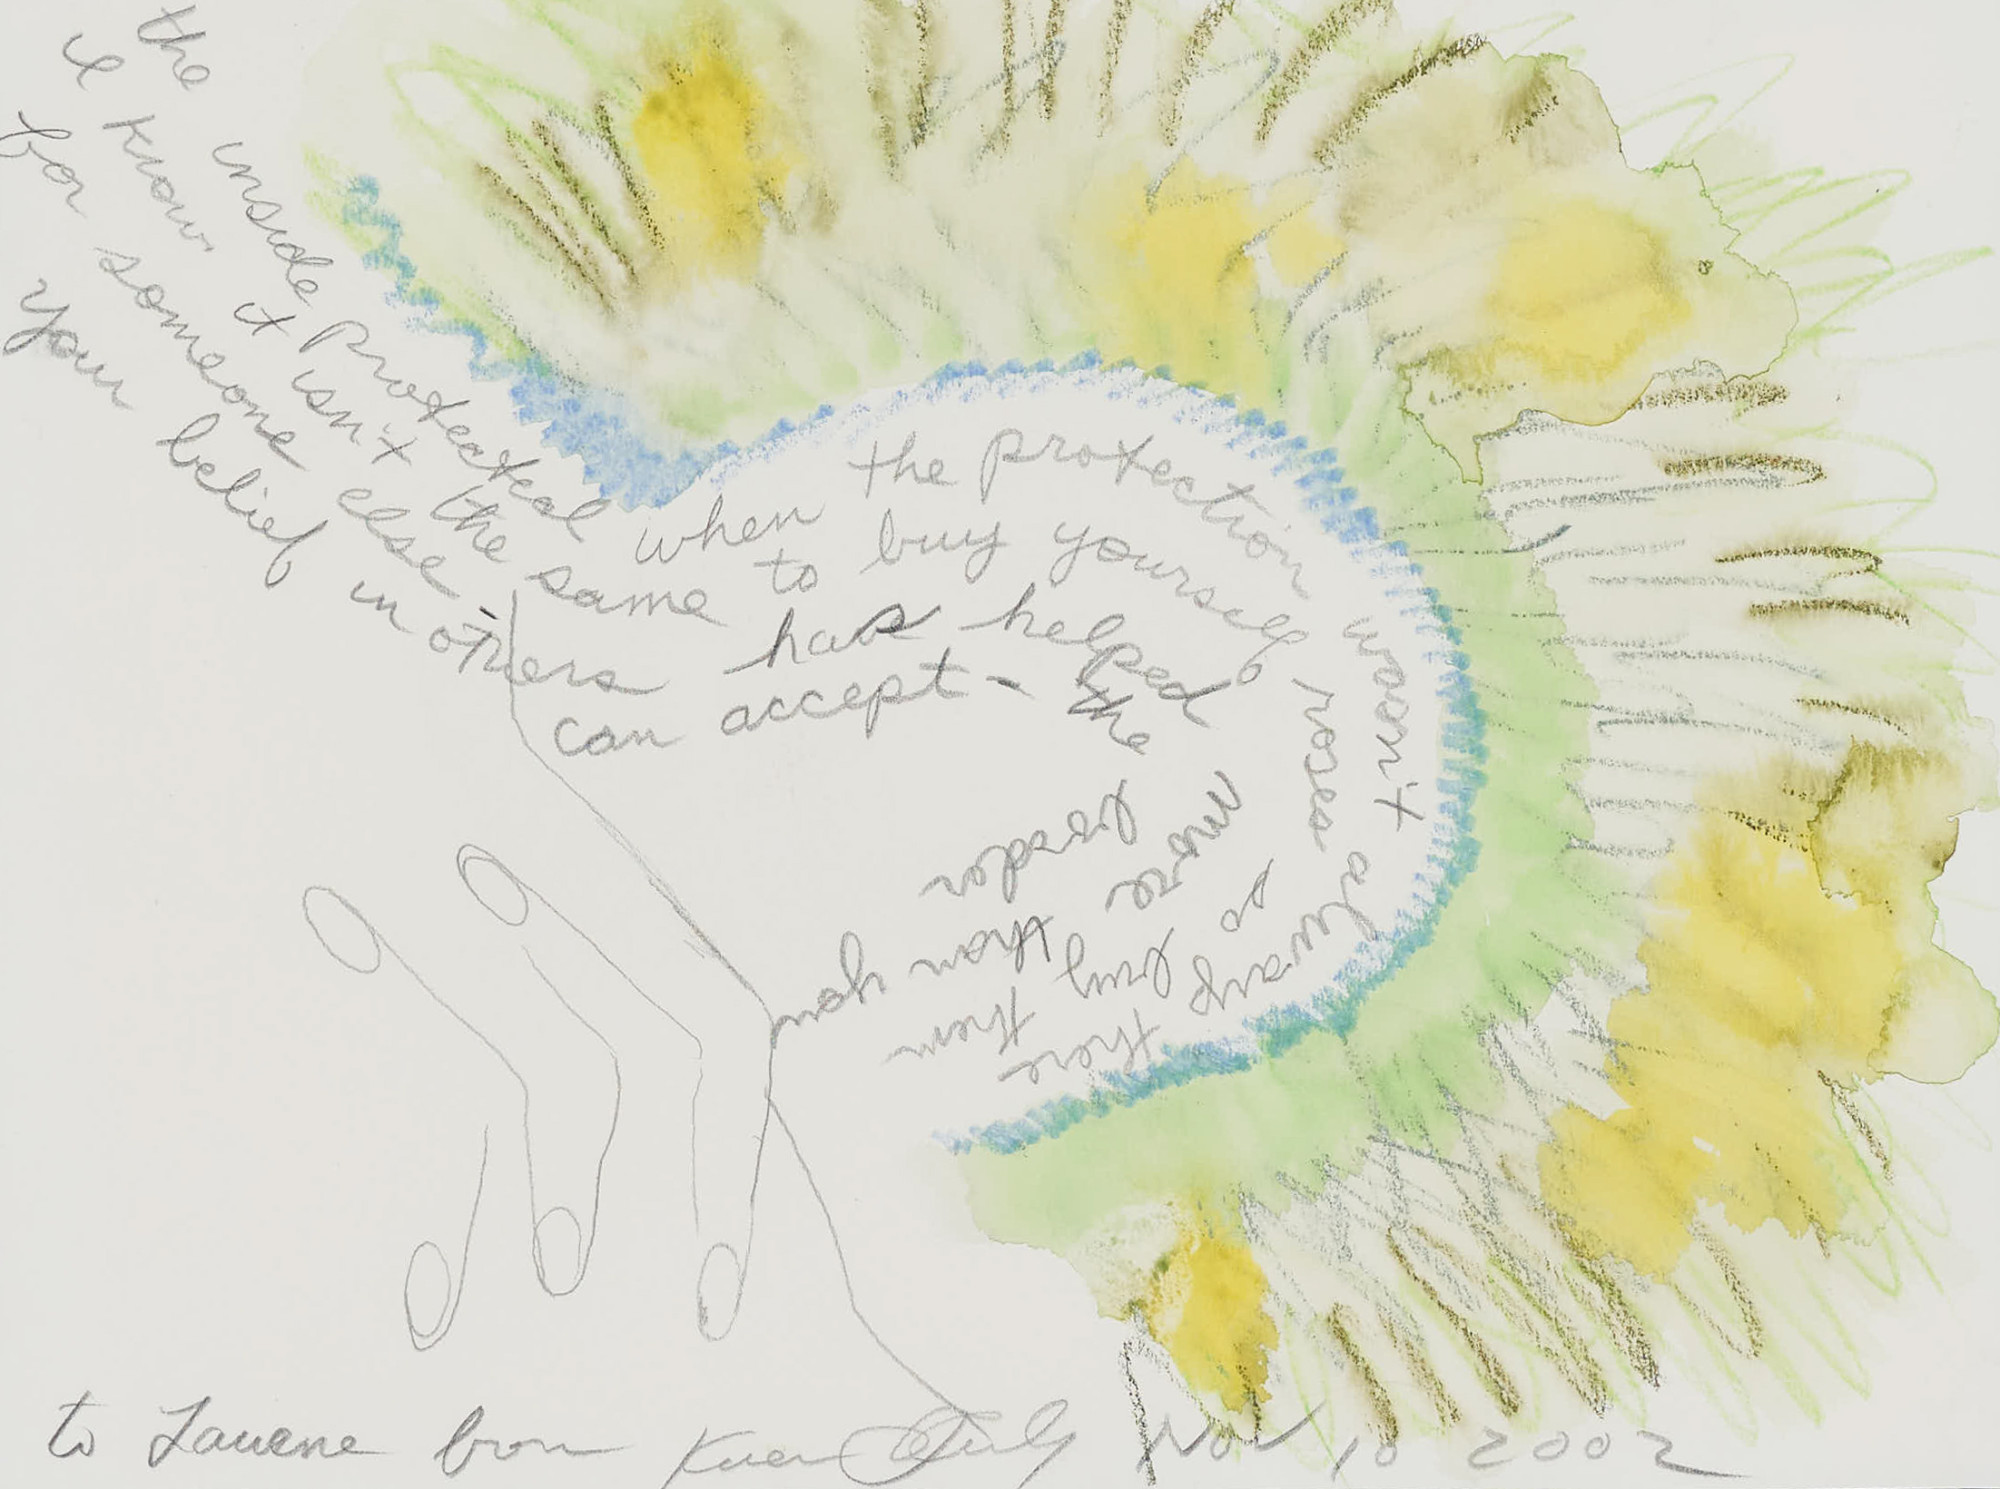 the inside protected when the protection wasn't always there
I know it isn't the same to buy yourself roses or buy them
for someone else -
your belief in others has helped more than you
can accept - the
to from Karen Finley Nov 10 2002